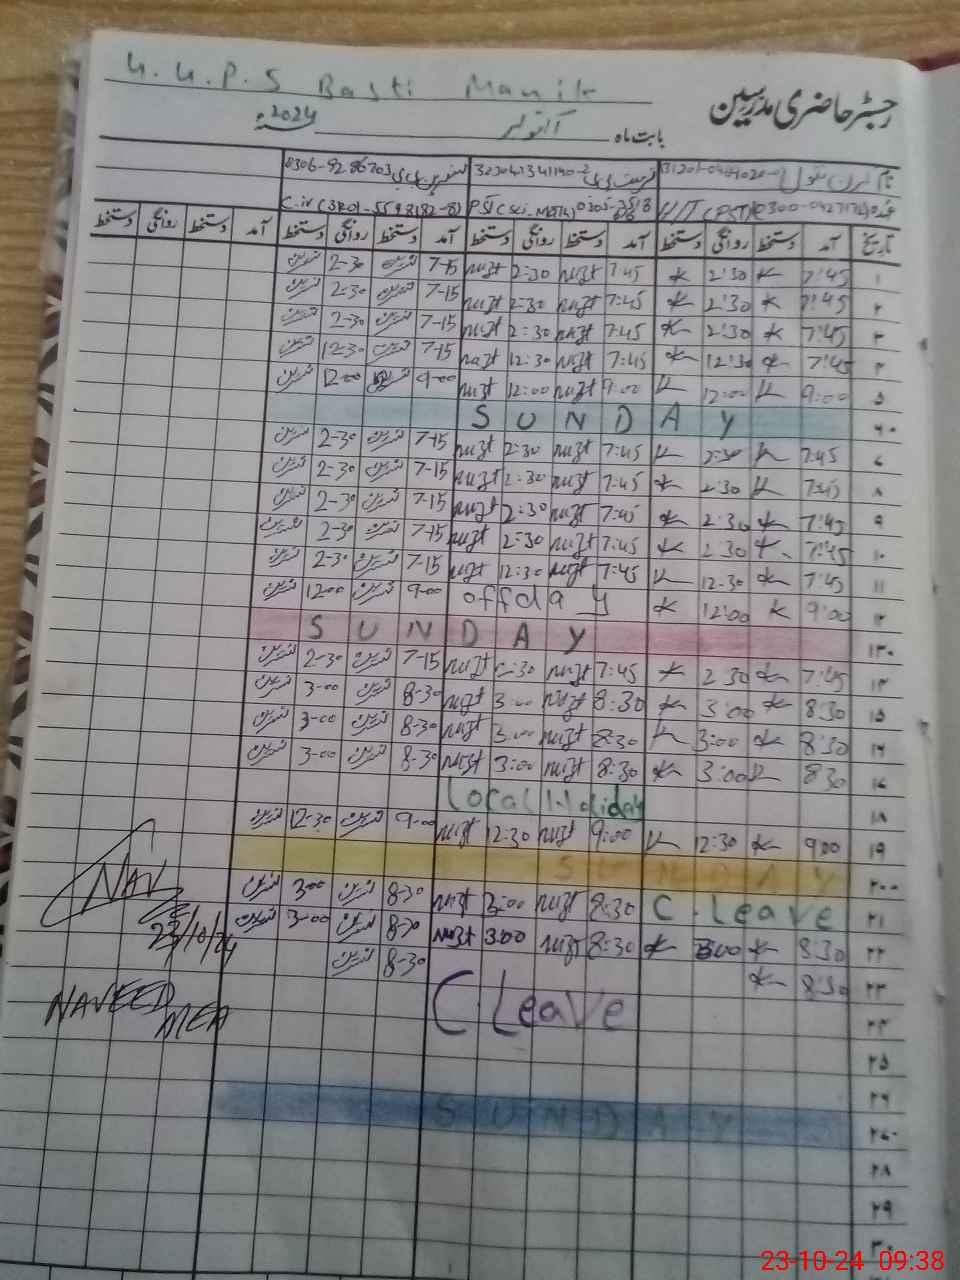 G.G.P.S Basti Manik
رجسٹر حاضری مدرسین
بابت ماہ اکتوبر سنہ 2024ء
نام
0306-9286703
عہدہ H/T (PST)
PST (Sci-Math)
تاریخ آمد دستخط روانگی دستخط آمد دستخط روانگی دستخط آمد دستخط روانگی دستخط آمد دستخط روانگی دستخط
۱ 7:45 2:30 7:45 nuzt 2:30 nuzt 7-15 نسرین 2-30 نسرین
۲ 7:45 2:30 7:45 nuzt 2:30 nuzt 7-15 نسرین 2-30 نسرین
۳ 7:45 2:30 7:45 nuzt 2:30 nuzt 7-15 نسرین 2-30 نسرین
۴ 7:45 12:30 7:45 nuzt 12:30 nuzt 7-15 نسرین 12-30 نسرین
۵ 9:00 12:00 9:00 nuzt 12:00 nuzt 9-00 نسرین 12-00 نسرین
۶ SUNDAY
۷ 7:45 2:30 7:45 nuzt 2:30 nuzt 7-15 نسرین 2-30 نسرین
۸ 7:45 2:30 7:45 nuzt 2:30 nuzt 7-15 نسرین 2-30 نسرین
۹ 7:45 2:30 7:45 nuzt 2:30 nuzt 7-15 نسرین 2-30 نسرین
۱۰ 7:45 2:30 7:45 nuzt 2:30 nuzt 7-15 نسرین 2-30 نسرین
۱۱ 7:45 12:30 7:45 nuzt 12:30 nuzt 7-15 نسرین 2-30 نسرین
۱۲ 9:00 12:00 offday 9-00 نسرین 1200 نسرین
۱۳ SUNDAY
۱۴ 7:45 2:30 7:45 nuzt 2:30 nuzt 7-15 نسرین 2-30 نسرین
۱۵ 8:30 3:00 8:30 nuzt 3:00 nuzt 8-30 نسرین 3-00 نسرین
۱۶ 8:30 3:00 8:30 nuzt 3:00 nuzt 8-30 نسرین 3-00 نسرین
۱۷ 830 3:00 8:30 nuzt 3:00 nuzt 8-30 نسرین 3-00 نسرین
۱۸ Local Holiday
۱۹ 900 12:30 9:00 nuzt 12:30 nuzt 9-00 نسرین 12-30 نسرین
۲۰ SUNDAY
۲۱ C.Leave 8:30 nuzt 3:00 nuzt 8-30 نسرین 3-00 نسرین
۲۲ 8:30 3:00 8:30 nuzt 3:00 nuzt 8-30 نسرین 3-00 نسرین
۲۳ 8:30 C Leave 8-30 نسرین
۲۴
۲۵
۲۶
۲۷ SUNDAY
۲۸
۲۹
۳۰
NAV
23/10/24
NAVEED
MEA
23-10-24 09:38